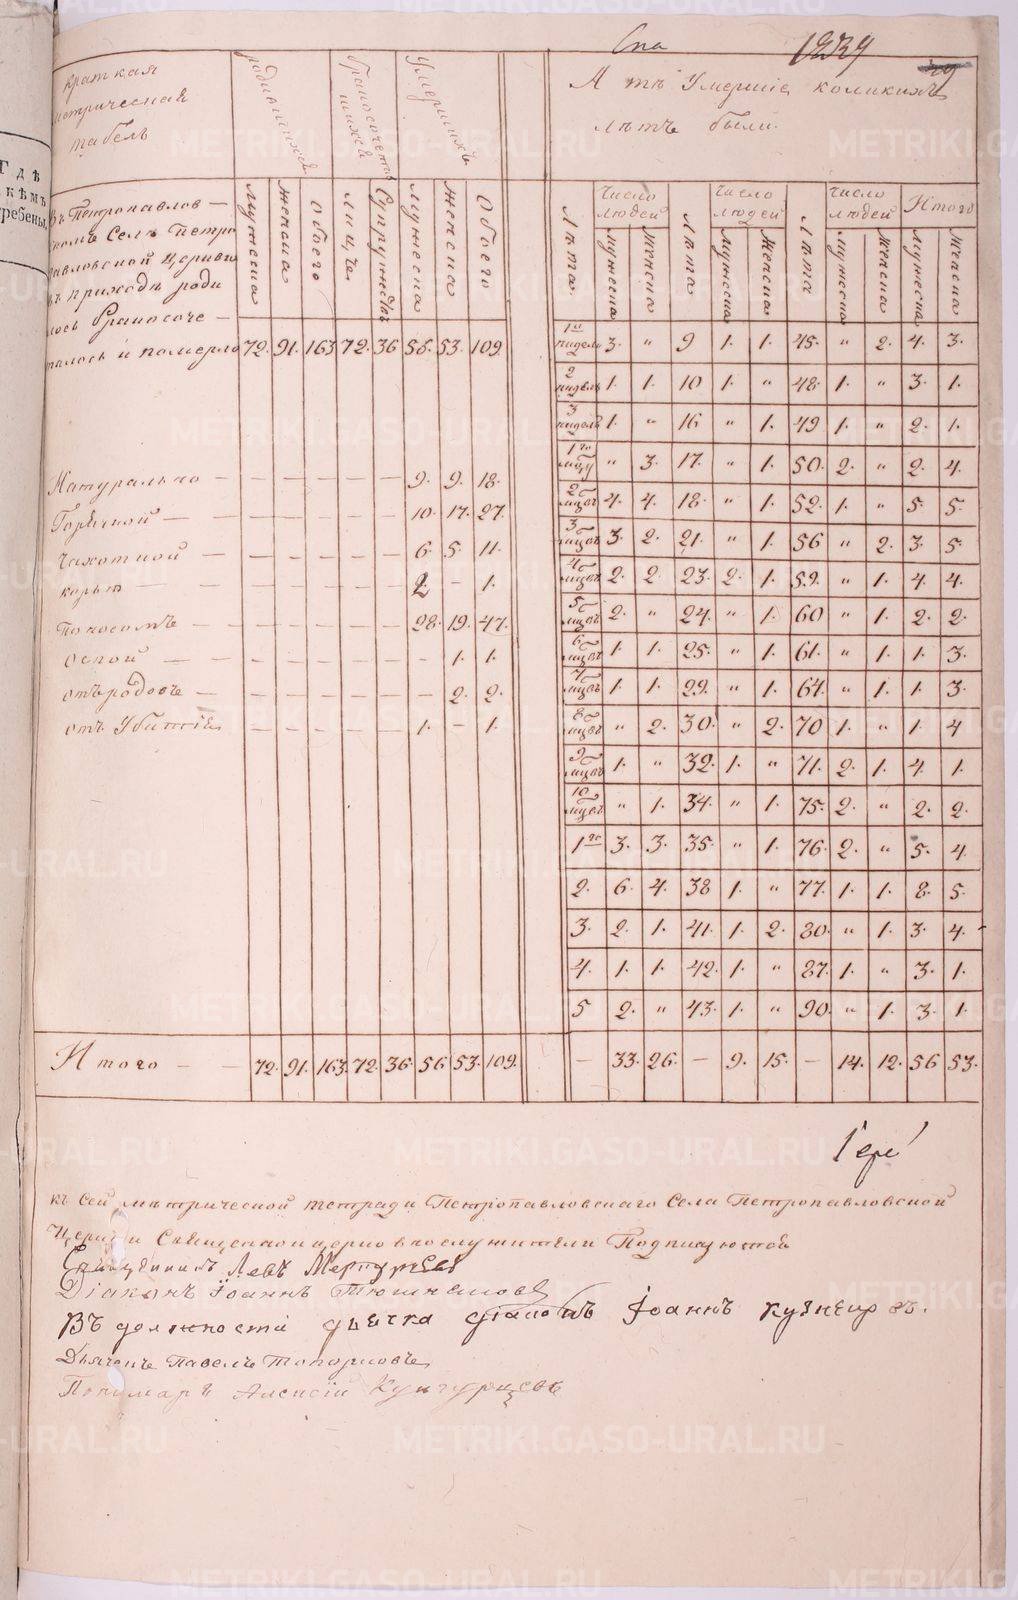 Гдѣ
кѣмъ
гребены.
Спа
1839
краткая
метрическая
табель
родившихся
бракосочетавшихся
умершихъ
А тѣ Умершіе коликихъ
лѣтъ были.
Въ Петропавлов-
скомъ Селѣ Петро
павловской церкви
въ приходѣ роди
лось бракосоче-
талось и померло
мужеска женска обоего лицъ супружествъ мужеска женска обоего
72. 91. 163 72. 36 56. 53. 109.
Лѣта число людей мужеска женска Лѣта число людей мужеска женска Лѣта число людей мужеска женска Итого мужеска женска
1й недель 3. " 9 1. 1. 45. " 2. 4. 3.
2 недель 1. 1. 10 1. " 48. 1. " 3. 1.
3 недель 1. " 16 " 1. 49 1. " 2. 1.
1го мцу " 3. 17. " 1. 50. 2. " 2. 4.
2 мцовъ 4. 4. 18. " 1. 52. 1. " 5. 5.
3 мцовъ 3. 2. 21. " 1. 56 " 2. 3. 5.
4 мцовъ 2. 2. 23. 2. 1. 59. " 1. 4. 4.
5 мцовъ 2. " 24. " 1. 60 " 1. 2. 2.
6 мцовъ 1. 1. 25. " 1. 61. " 1. 1. 3.
7 мцовъ 1. 1. 29. " 1. 64. " 1. 1. 3.
8 мцовъ " 2. 30. " 2. 70 1. " 1. 4
9 мцовъ 1. " 32. 1. " 71. 2. 1. 4. 1.
10 мцовъ " 1. 34. " 1. 75. 2. " 2. 2.
1го 3. 3. 35. " 1. 76. 2. " 5. 4.
2. 6. 4. 38 1. " 77. 1. 1. 8. 5.
3. 2. 1. 41. 1. 2. 80. " 1. 3. 4.
4. 1. 1. 42. 1. " 87. 1. " 3. 1.
5 2. " 43. 1. " 90. " 1. 3. 1.
Натурально - - - - - - 9. 9. 18.
Горячкой - - - - - - 10. 17. 27.
Чахоткой - - - - - - 6. 5. 11.
корью - - - - - - - 1.
Поносомъ - - - - - - 28. 19. 47.
Оспой - - - - - - - 1. 1.
отъ родовъ - - - - - - - 2. 2.
отъ Убитія - - - - - - 1. - 1.
Итого - - 72. 91. 163. 72. 36. 56 53. 109. - 33. 26. - 9. 15. - 14. 12. 56 53.
Іере
къ сей метрической тетради Петропавловскаго Села Петропавловской
Церкви Священноицерковнослужители Подписуются
Священникъ Левъ
Діаконъ Іоаннъ
Въ должности дьячка діаконъ Іоаннъ Кузнецовъ.
Дьячекъ Павелъ Топорковъ
Пономарь Алексій Кунгурцевъ
METRIKI.GASO-URAL.RU